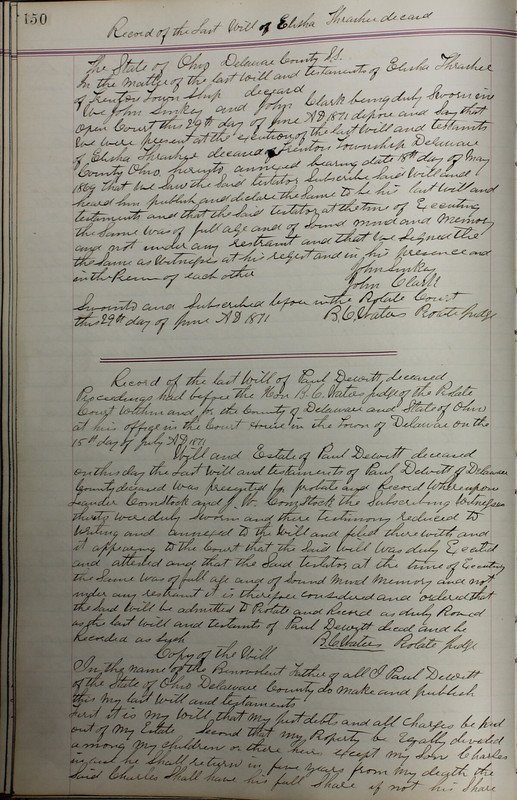 150
Record of the Last Will of Elisha Thrasher decard
The State of Ohio Delaware County SS.
In the Matter of the last Will and testaments of Elisha Thrasher
of Trenton Town Ship decard
We John Sinkey and John Clark being duly Sworn in
Open Court this 29th day of June AD 1871 depose and Say that
We were present at the execution of the last Will and testaments
of Elisha Thrasher decard Trenton Township Delaware
County Ohio hereunto annexed bearing date 18th day of May
1869 that We Saw the Said testator Subscribe Said Will and
heard him publish and declare the Same to be his last Will and
testaments and that the Said testator at the time of Executing
the Same was of full age and of Sound mind and Memory
and not under any restraint and that We Signed the
the Same as Witnesses at his request and in his presence and
in the of each other John Sinkey
John Clark
Sworn to and Subscribed before in the Probate Court
this 29th day of June AD 1871 B.C. Waters Probate Judge
Record of the last Will of Paul Dewitt, deceased
Proceedings had before the Hon B.C. Waters Judge of the Probate
Court Within and for the County of Delaware and State of Ohio
at his office in the Court House in the Town of Delaware on the
15th day of July AD 1871
Will and Estate of Paul Dewitt deceased
on this day the Last Will and testaments of Paul Dewitt of Delaware
County deceased was presented for probate and Record Whereupon
Leander Comstock and J. W. Comstock the Subscribing Witnesses
thereto were duly Sworn and there testimony reduced to
Writing and annexed to the Will and filed therewith and
it appearing to the Court that the Said Will was duly
and attested and that the Said testator at the time of Executing
the Same was of full age and of Sound Mind Memory and not
under any restraint it is therefore considered and ordered that
the Said Will be admitted to Probate and Record as duly Proved
as the last Will and testments of Paul Dewitt decd and be
Recorded as Such B.C. Waters Probate Judge
Copy of the Will
In the name of the Benevolent Father of all I Paul Dewitt
of the State of Ohio Delaware County do make and publish
this my last Will and testaments
First it is my Will that my just debts and all charges be paid
out of my Estate Second that my Property be Equally devided
among my children or there heirs except my Son Charles
he Shall return in five years from my death the
Said Charles Shall have his full Share if not his Share